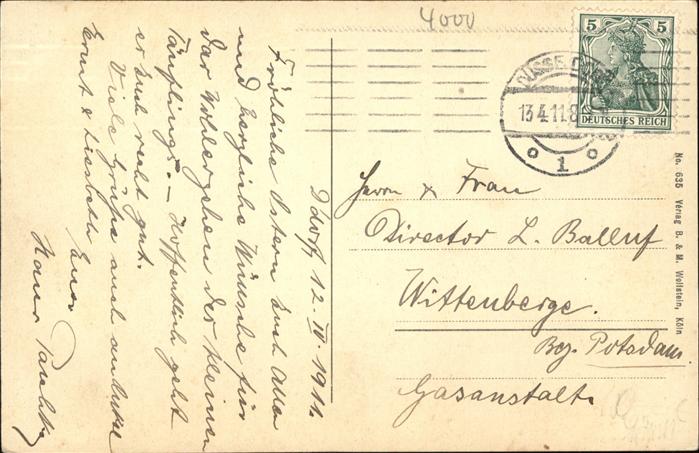 4000
5 5
DEUTSCHES REICH
DÜSSELDORF
13.4.11.8
1
Ddorf, 12. IV. 1911.
Fröhliche Ostern Euch Allen
und herzliche Wünsche für
das Wohlergehen des kleinen
Täuflings. — Hoffentlich geht
es Euch recht gut.
Viele Grüsse auch an
Ernst & Liesbeth
Euer
Hans
Herrn & Frau
Director L. Balluf
Wittenberge.
Bez. Potsdam.
Gasanstalt.
No. 635 Verlag B. & M. Wollstein, Köln